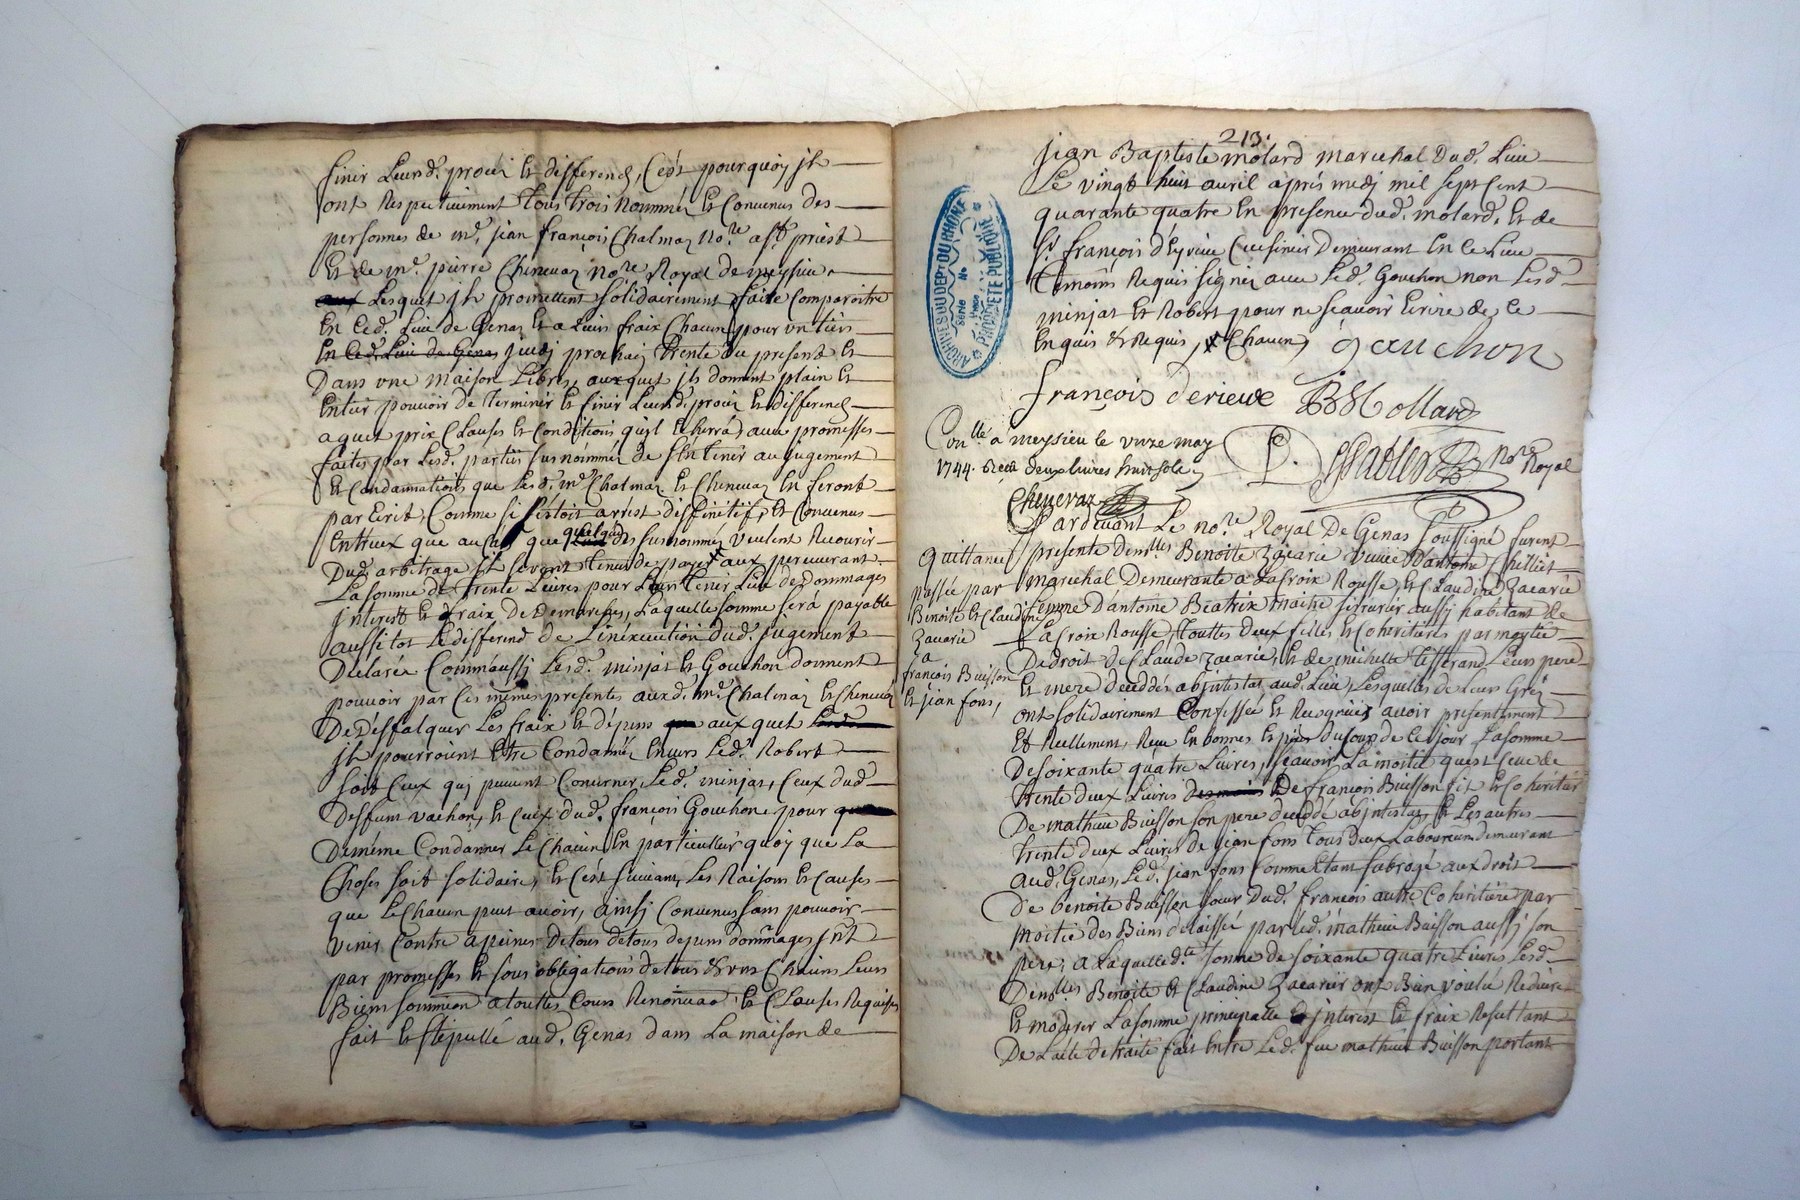 finir Leursd. procei et differend, C'est pourquoy jls
ont Respectivement tous trois Nommés et Convenus des
personnes de me. jean françois Chalmaz Nore. a St priest
et de me. pierre Chenevaz nore Royal de meysieu
Lesquels jls promettent solidairement faire Comparoitre
En Ced. Lieu de Genas et a Leurs fraix Chacun pour un tiers
En Ced. Lieu de Genas jeudj prochain trente du present et
Dans une maison Libre, auxquels jls donnent plain et
Entier pouvoir de terminer et finir Leursd. procei et differend
a quel prix Clauses et Conditions qu'jl Echerra avec promesses
faites par Lesd. parties susnommés de s'En tenir au jugement
et Condamnations que Lesd. mes Chalmaz et Chenevaz En feront
par Ecrit, Comme si s'étoit arrest diffinitif, et Convenus
Entreux que au Cas que quelquns des susnommés veulent Recourir
Dud. arbitrage jls seront tenus de payer aux percevant
La somme de trente Livres pour Leurs tenir Lieu de dommages
jnterest et fraix de Demarches, Laquelle somme sera payable
aussitot Le differend de L'inéxecution dud. jugement
Déclarée Comm'aussj Lesd. minjat et Gouchon donnent
pouvoir par Ces mêmes presentes auxd. mes Chalmaz et Chenevaz
De Désfalquer Les fraix et dépens aux quels
jls pourroient être Condamnés Envers Led. Robert
soit Ceux quj peuvent Concerner Led. minjat, Ceux dud.
Desfunt vachon, et Ceux dud. françois Gouchon, pour
Deméme Condamner Le Chacun En particullier quoy que La
Choses soit solidaire, et C'est suivant Les Raisons et Causes
que Le Chacun peut avoir, ainsj Convenus sans pouvoir
venir Contre a peines de tous de tous depens dommages jnt
par promesses et sous obligations de tous & uns Chacuns Leurs
Biens soummion a touttes Cours Renonciaon et Clauses Requises
fait et stépullé aud. Genas dans La maison de
213.
jean Baptiste molard marechal Dud. Lieu
Le vingt huit avril après midj mil sept Cent
quarante quatre En presence dud. molard. et de
Sr. françois d'Eyrieue Cuisinier Demeurant En Ce Lieu
témoins Requis signés avec Led. Gouchon non Lesd.
minjat et Robert pour ne sçavoir Ecrire de Ce
Enquis & Requis, Chacun
gauchon
françois derieue
JB Mollard
Conllé a meysieu le unze may
1744. Reçu deux livres huit sols
Chenevaz
Nore Royal
Quittance
passée par
Benoite et Claudine
Zacarie
a
françois Buisson
et jean fons,
Pardevant Le nore Royal De Genas soussigné furent
presente Demlles Benoite Zacarie veuve D'antoine Chillier
marechal Demeurante a La Croix Rousse, et Claudine Zacarie
femme d'antoine Béatrix maitre serrurier aussj habitant De
La Croix Rousse, touttes deux filles et Coheritieres par moytié
De droit de Claude Zacarie, et de michelle Tifferand Leurs pere
et mere decedés abjntestat aud. Lieu, Lesquelles de Leurs Gréz
ont solidairement Confessée et Recognües avoir presentement
et Réellement Reçu En bonnes Espèces du Cour de Ce jour La somme
De soixante quatre Livres, sçavoir La moitié quest Celle de
trente deux Livres De françois Buisson fils et Coheritier
De mathieu Buisson son pere decédé abjntestat, et Les autres
trente deux Livres de jean fons tous deux Laboureurs demeurant
aud. Genas, Led. jean fons Comme Etant subrogé aux droit
De benoite Buisson soeur dud. françois autre Coheritiere par
moitié des Biens delaissés par Led. mathieu Buisson aussj son
pere, a Laquelle dte somme de soixante quatre Livres Lesd.
Demlles Benoite et Claudine Zacarie ont Bien voulu Reduire
et modérer La somme principalle et jnterest et fraix Resultant
De L'acte de traité fait Entre Led. feu mathieu Buisson portant
ARCHIVES DU DEPT DU RHONE
PROPRIETE PUBLIQUE